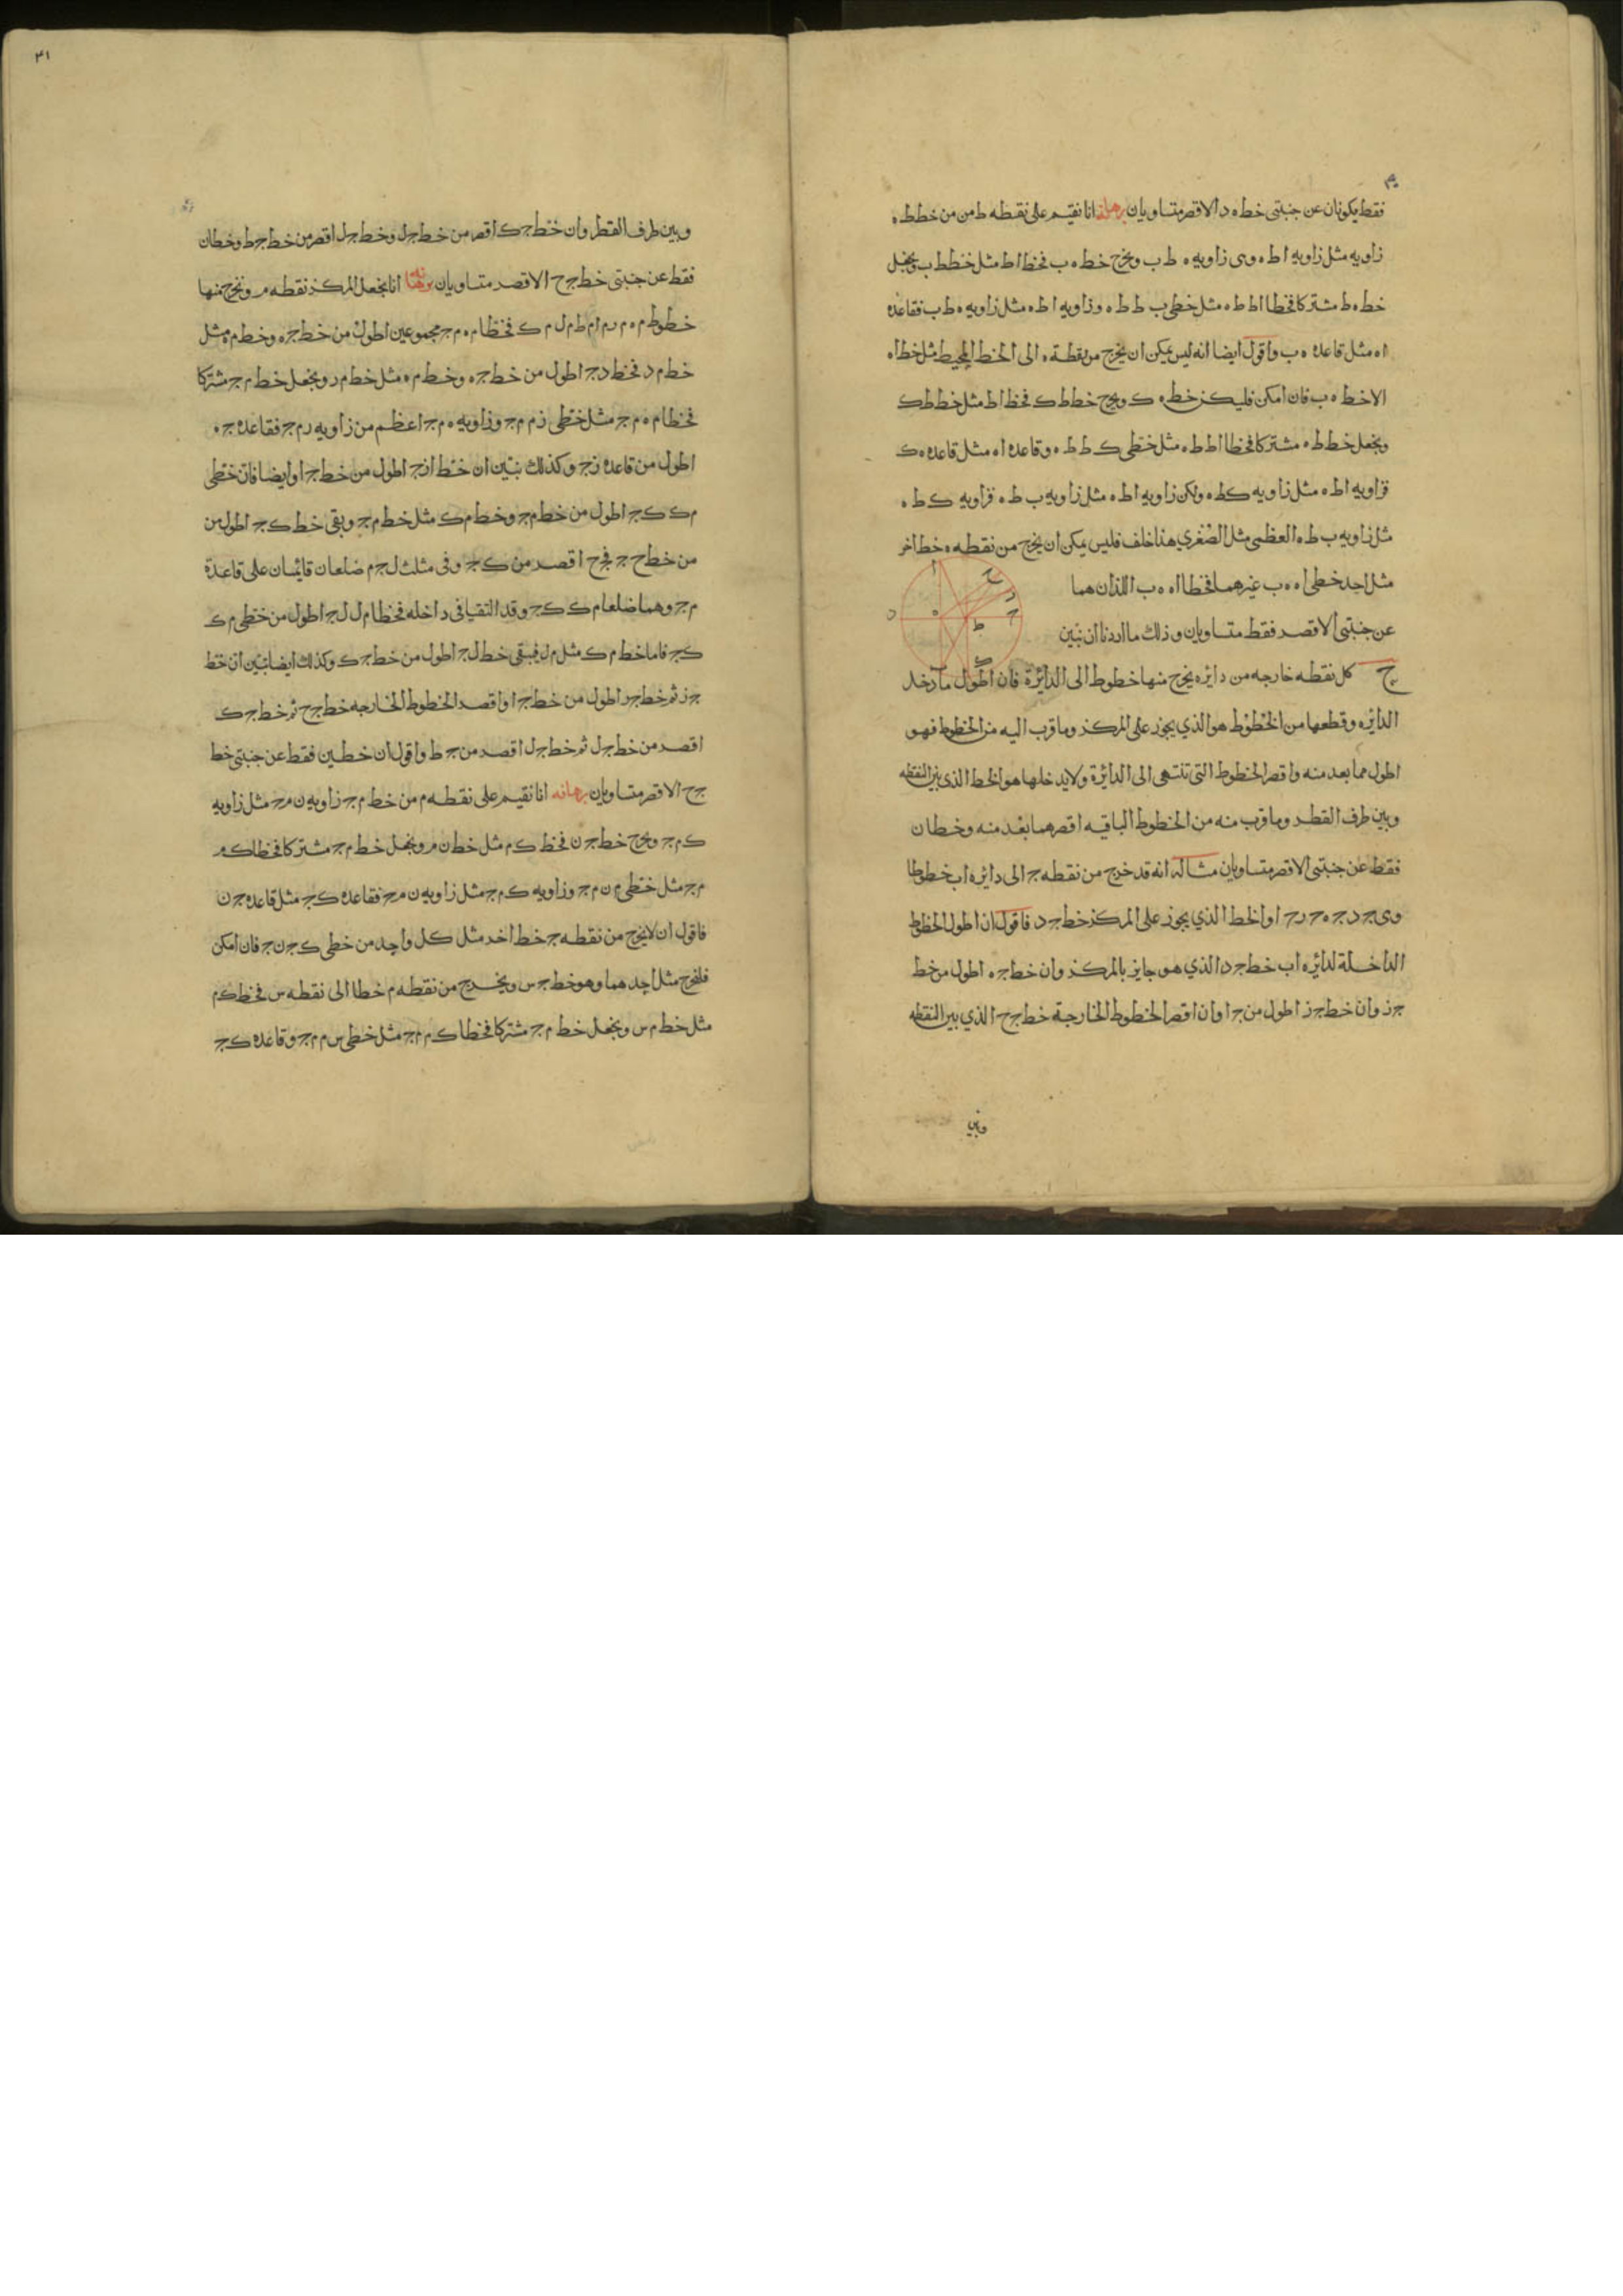 ٤٠
فقط يكونان عن جنبتى خط ه د الاقصر متساويان برهانه انا نقيم على نقطه ط من من خط ط ه
زاويه مثل زاويه ا ط ه وهى زاويه ه ط ب ونخرج خط ه ب فخط ا ط مثل خط ط ب ونجعل
خط ه ط مشتركا فخطا ا ط ط ه مثل خطى ب ط ط ه وزاويه ا ط ه مثل زاويه ه ط ب فقاعده
ا ه مثل قاعده ه ب واقول ايضا انه ليس يمكن ان يخرج من نقطة ه الى الخط المحيط مثل خط ا ه
الا خط ه ب فان امكن فليكن خط ه ك ونخرج خط ط ك فخط ا ط مثل خط ط ك
ونجعل خط ط ه مشتركا فخطا ا ط ط ه مثل خطى ك ط ط ه وقاعده ا ه مثل قاعده ه ك
فزاويه ا ط ه مثل زاويه ك ط ه ولكن زاويه ا ط ه مثل زاويه ب ط ه فزاويه ك ط ه
مثل زاويه ب ط ه العظمى مثل الصغري هذا خلف فليس يمكن ان يخرج من نقطه ه خط اخر
مثل احد خطى ا ه ه ب غيرهما فخطا ا ه ه ب اللذان هما
عن جنبتى الاقصر فقط متساويان وذلك ما اردنا ان نبين
ح كل نقطه خارجه من دايره يخرج منها خطوط الى الدائرة فان اطول ما دخل
الدائره وقطعها من الخطوط هو الذي يجوز على المركز وما قرب اليه من الخطوط فهو
اطول مما بعد منه واقصر الخطوط التى تنتهى الى الدائرة ولا يدخلها هو الخط الذى بين النقطه
وبين طرف القطر وما قرب منه من الخطوط الباقيه اقصر مما بعد منه وخطان
فقط عن جنبتى الاقصر متساويان مثاله انه قد خرج من نقطه ج الى دايره اب خطوطا
وهى ج د ج ه ج ر ج ا والخط الذي يجوز على المركز خط ج د فاقول ان اطول الخطوط
الداخلة لدائره اب خط ج د الذي هو جايز بالمركز وان خط ج ه اطول من خط
ج ز وان خط ج ز اطول من ج ا وان اقصر الخطوط الخارجة خط ج ح الذي بين النقطه
وبين
٤١
وبين طرف القطر وان خط ج ك اقصر من خط ج ل وخط ج ل اقصر من خط ج ط وخطان
فقط عن جنبتى خط ج ح الاقصر متساويان برهانه انا نجعل المركز نقطه م ونخرج منها
خطوط م ه م ر م ا م ط م ل م ك فخطا م ه م ج مجموعين اطول من خط ج ه وخط م ه مثل
خط م د فخط د ج اطول من خط ج ه وخط م ه مثل خط م ر ونجعل خط م ج مشتركا
فخطا م ه م ج مثل خطى ز م م ج وزاويه ه م ج اعظم من زاويه ر م ج فقاعده ج ه
اطول من قاعده ز ج وكذلك نبين ان خط از ج اطول من خط ج ا وايضا فان خطى
م ك ك ج اطول من خط م ج وخط م ك مثل خط م ج وبقى خط ك ج اطول من
من خط ح ج فج ح اقصر من ك ج وفى مثلث ل ج م ضلعان قايمان على قاعدة
م ج وهما ضلعا م ك ك ج وقد التقيا فى داخله فخطا م ل ل ج اطول من خطى م ك
ك ج فاما خط م ك مثل م ل فيبقى خط ل ج اطول من خط ج ك وكذلك ايضا نبين ان خط
ج ز ثم خط ج ر اطول من خط ج ا واقصر الخطوط الخارجه خط ج ح ثم خط ج ك
اقصر من خط ج ل ثم خط ج ل اقصر من ج ط واقول ان خطين فقط عن جنبتى خط
ج ح الاقصر متساويان برهانه انا نقيم على نقطه م من خط م ج زاويه ن م ج مثل زاويه
ك م ج ونخرج خط ج ن فخط ك م مثل خط ن م ونجعل خط م ج مشتركا فخطا ك م
م ج مثل خطى م ن م ج وزاويه ك م ج مثل زاويه ن م ج فقاعده ك ج مثل قاعده ج ن
فاقول ان لا يخرج من نقطه ج خط اخر مثل كل واحد من خطى ك ج ن ج فان امكن
فليخرج مثل احدهما وهو خط ج س ويخرج من نقطه م خطا الى نقطه س فخط ك م
مثل خط م س ونجعل خط م ج مشتركا فخطا ك م م ج مثل خطى س م م ج وقاعده ك ج